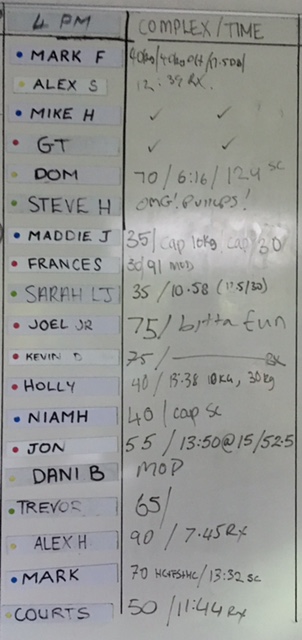 4 PM COMPLEX/TIME
MARK F 40kg/40kg
ALEX S 12:39 RX.
MIKE H ✓ ✓
GT ✓ ✓
DOM 70/6:16/12.4 SC
STEVE H OMG! PULLUPS!
MADDIE J 35/cap 10kg cap 30
FRANCES 30/91 MOD
SARAH LJ 35/10.58 (17.5/30)
JOEL JR 75/bitta fun
KEVIN D 75/ RX
HOLLY 40/13:38 10KG, 30kg
NIAMH 40/cap SC
JON 55/13:50@15/52.5
DANI B MOP
TREVOR 65/
ALEX H 90/7.45 RX
MARK 70 /13:32 SC
COURTS 50/11:44 RX